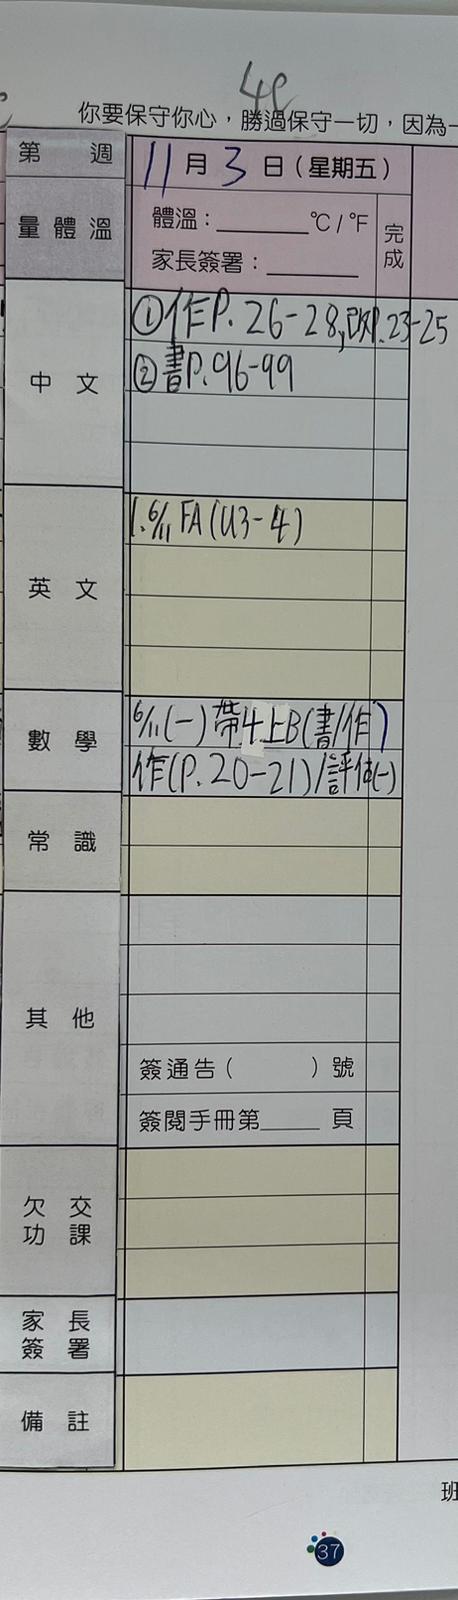 4C
你要保守你心，勝過保守一切，因為一
第 週
11月3日（星期五）
量體溫
體溫：________℃/℉
家長簽署：________
完成
中文
①作P.26-28,改P.23-25
②書P.96-99
英文
1. 6/11 FA(U3-4)
數學
6/11(一)帶4上B(書/作)
作(P.20-21)/評估(一)
常識
其他
簽通告（ ）號
簽閱手冊第_____頁
欠交功課
家長簽署
備註
班
37